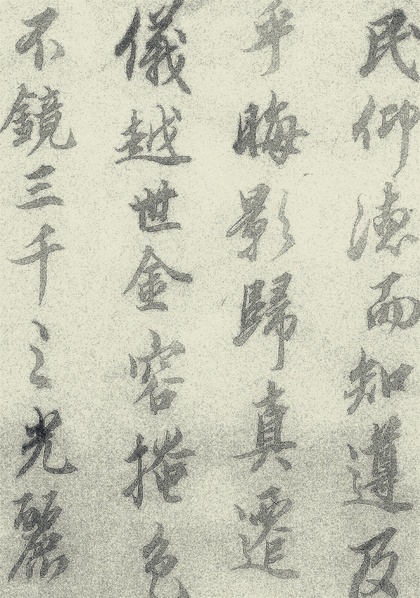 民仰德而知遵及
乎晦影歸真遷
儀越世金容掩色
不鏡三千之光麗